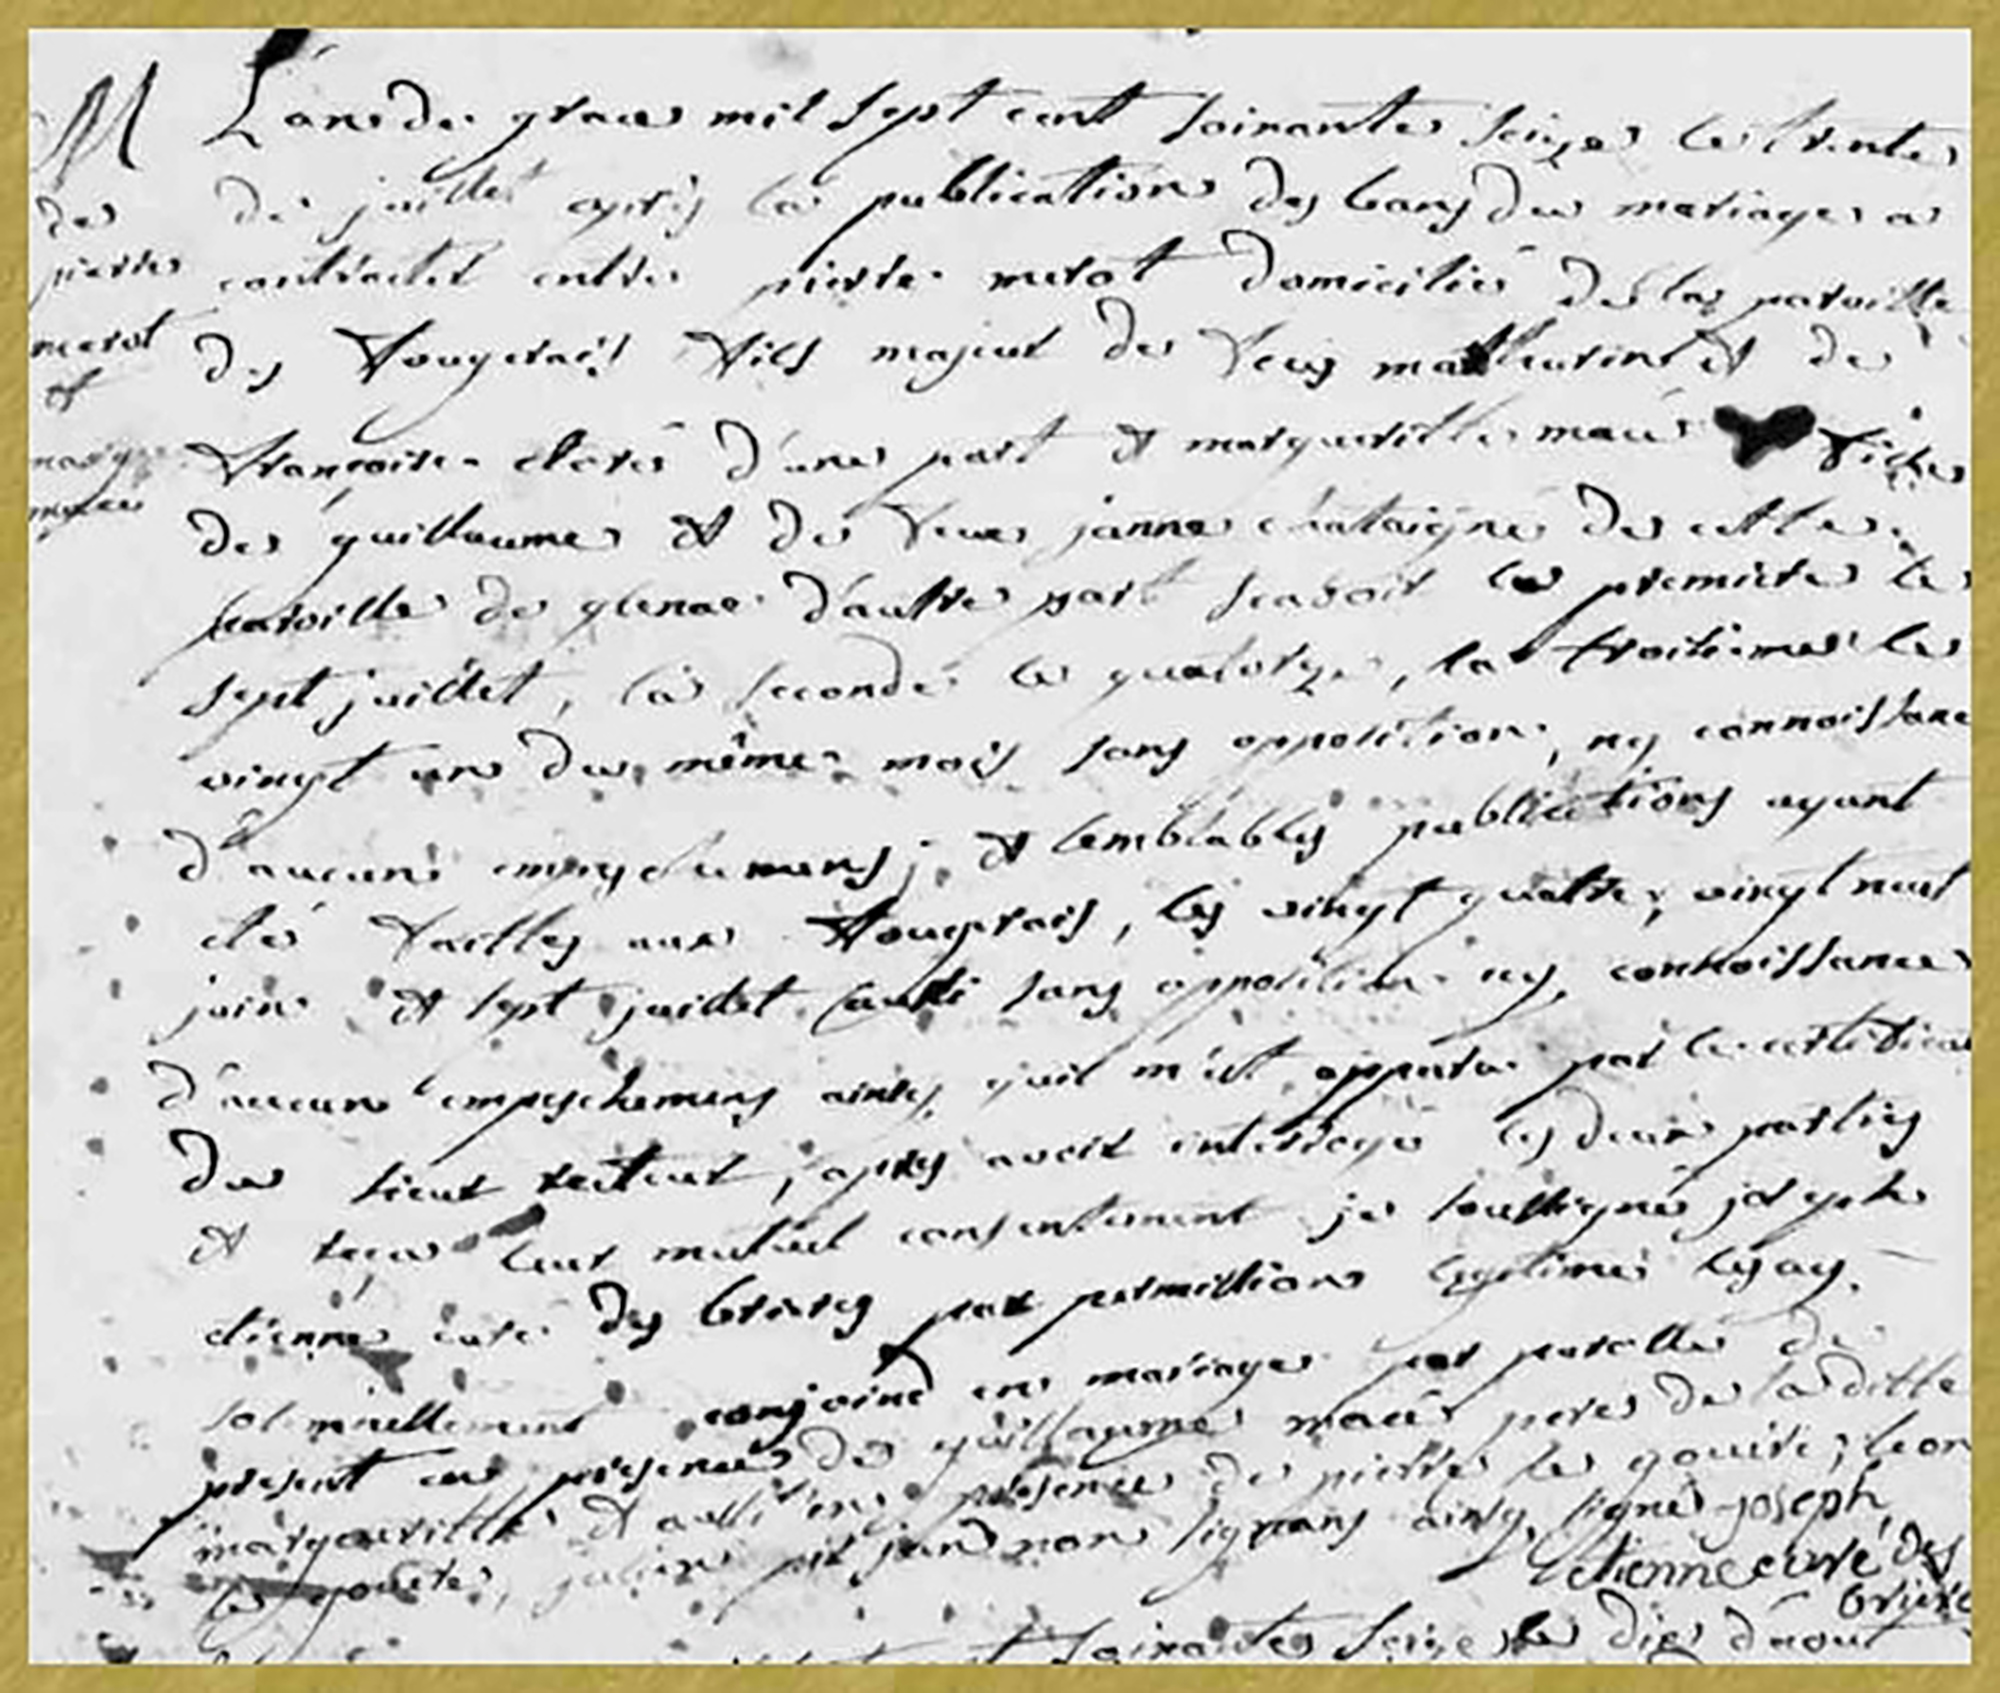 M
de
pierre
merot
et
marg
mace
L'an de grace mil sept cent soixante seize le trente
de juillet après la publication des bans du mariage a
contracter entre pierre merot domicilié de la paroisse
des fougerais fils majeur de feus mathurin et de
françoise d'une part et margueritte macé fille
de guillaume et de feue janne chataigné de cette
paroisse de glenac d'autre part scavoir la premiere le
sept juillet, la seconde le quatorze, la troisieme le
vingt un du même mois sans opposition, ny connoissance
d'aucuns empeschemens; et semblables publications ayant
été faittes aux fougerais, les vingt quatre, vingt neuf
juin et sept juillet aussi sans opposition ny connoissance
d'aucuns empeschemens ainsy qu'il m'est apparu par le certificat
du sieur recteur, après avoir interrogé les deux parties
et reçu leur mutuel consentement je soussigné joseph
etienne curé des brieres par permission les ay
solemnellement conjoint en mariage par parolle de
present en presence de guillaume macé pere de laditte
margueritte et aussi en presence de pierre le gouire, leon
le gouire, julien non signans ainsy signé joseph
etienne curé des
briere
soixante seize le dix d'aout